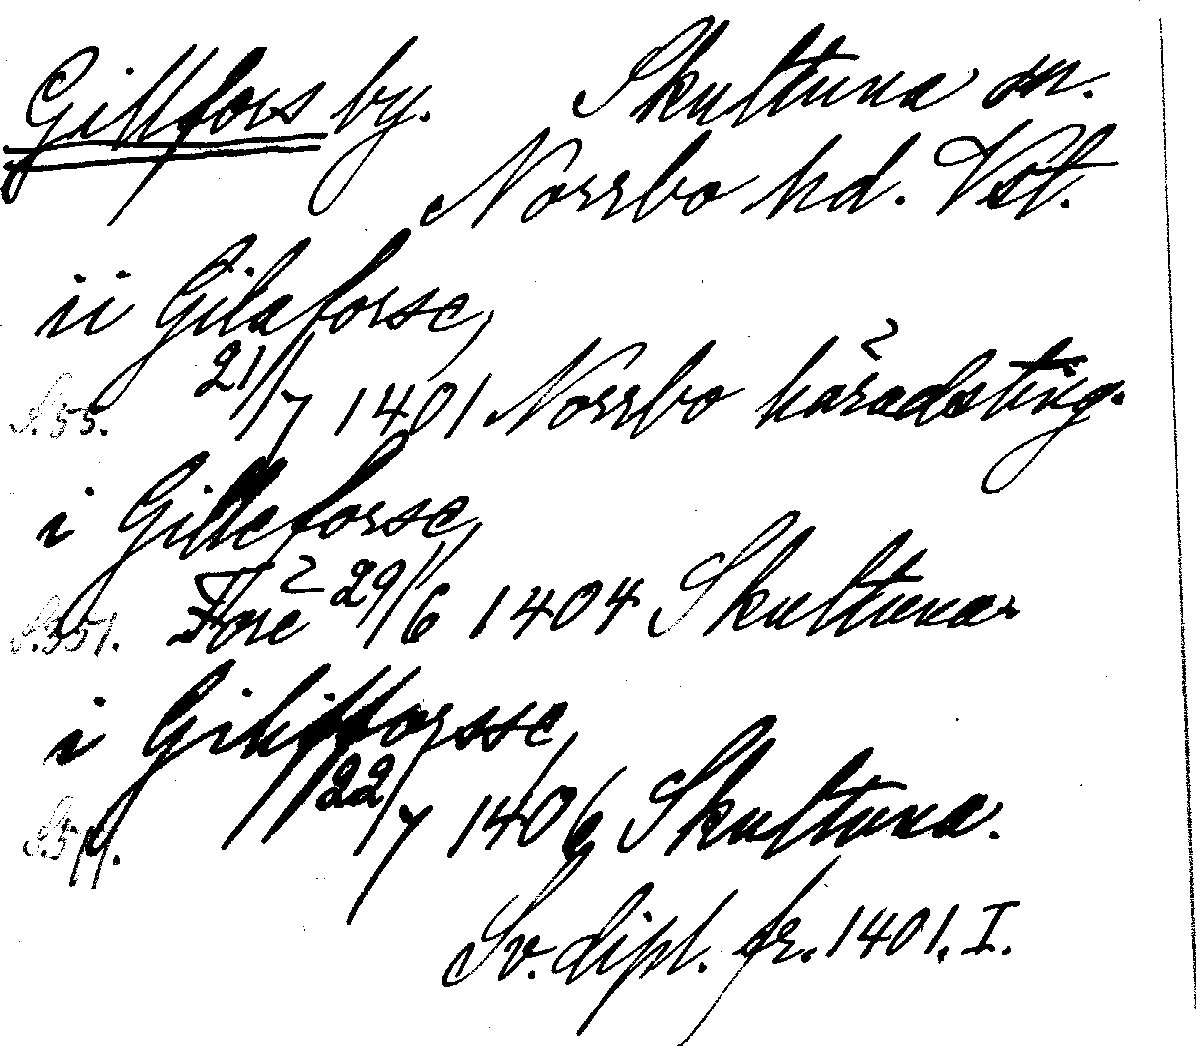 Gillfors by. Skultuna sn.
Norrbo hd. Vstl.
ii Gilaforse,
S.55. 21/7 1401 Norrbo häradsting.
i Gilleforse,
S.351. Före 29/6 1404 Skultuna.
i Gilifforsse,
22/7 1406 Skultuna.
Sv. dipl. fr. 1401. I.